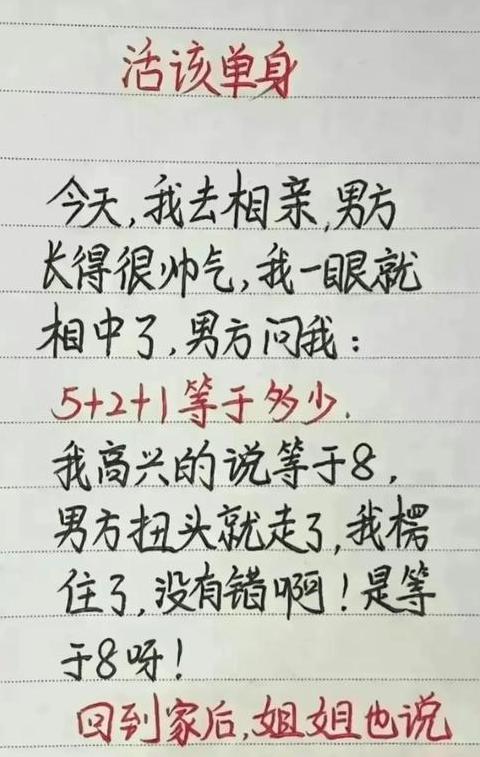 活该单身
今天,我去相亲,男方
长得很帅气,我一眼就
相中了,男方问我:
5+2+1等于多少.
我高兴的说等于8,
男方扭头就走了,我楞
住了,没有错啊!是等
于8呀!
回到家后,姐姐也说